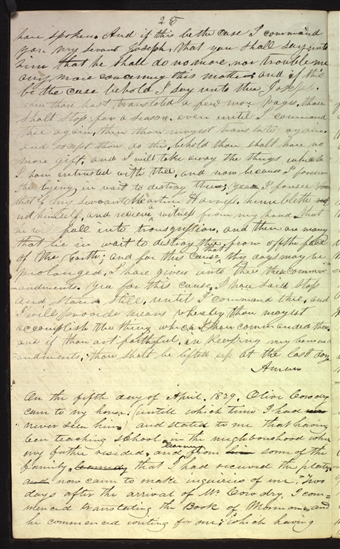 28
have spoken. And if this be the case I command
you my servant Joseph, that you shall say unto
him that he shall do no more, nor trouble me
any more concerning this matter; and if this
be the case behold I say unto thee Joseph
when thou hast translated a few more pages, thou
shalt stop for a season, even until I command
thee again, then thou mayest translate again.
and except thou do this, behold thou shalt have no
more gift, and I will take away the things which
I have entrusted with thee. and now because I foresee
the lying in wait to destroy thee; yea, I foresee
that if my servant Martin Harris humbleth not
himself, and receive witness from my hand, that
he will fall into transgression, and there are many
that lie in wait to destroy thee from off the face
of the earth; and for this cause, that thy days may be
prolonged, I have given unto thee these command-
ments. Yea for this cause, I have said stop
and stand still, until I command thee, and
I will provide means whereby thou mayest
accomplish the thing which I have commanded thee
and if thou art faithful, in keeping my command-
ments, thou shalt be lifted up at the last day
Amen
On the fifth day of April, 1829, Oliver Cowdery
came to my house, (until which time I had
never seen him) and stated to me that having
been teaching school in the neighbourhood where
my father resided, and learning from some of the
family, that I had received the plates,
now came to make inquiries of me. Two
days after the arrival of Mr Cowdery, I com-
menced translating the Book of Mormon, and
he commenced writing for me, which having